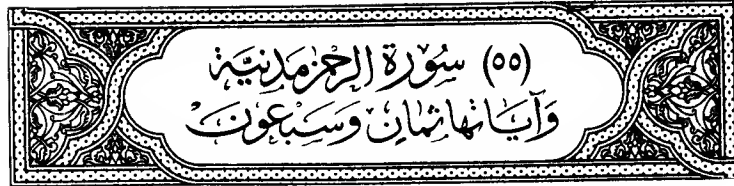 (٥٥) سُوْرَةِ الرَّحْمٰنِ مَدَنِيَّة
وَآيَاتهَا ثمَانِ وَسَبْعُونَ